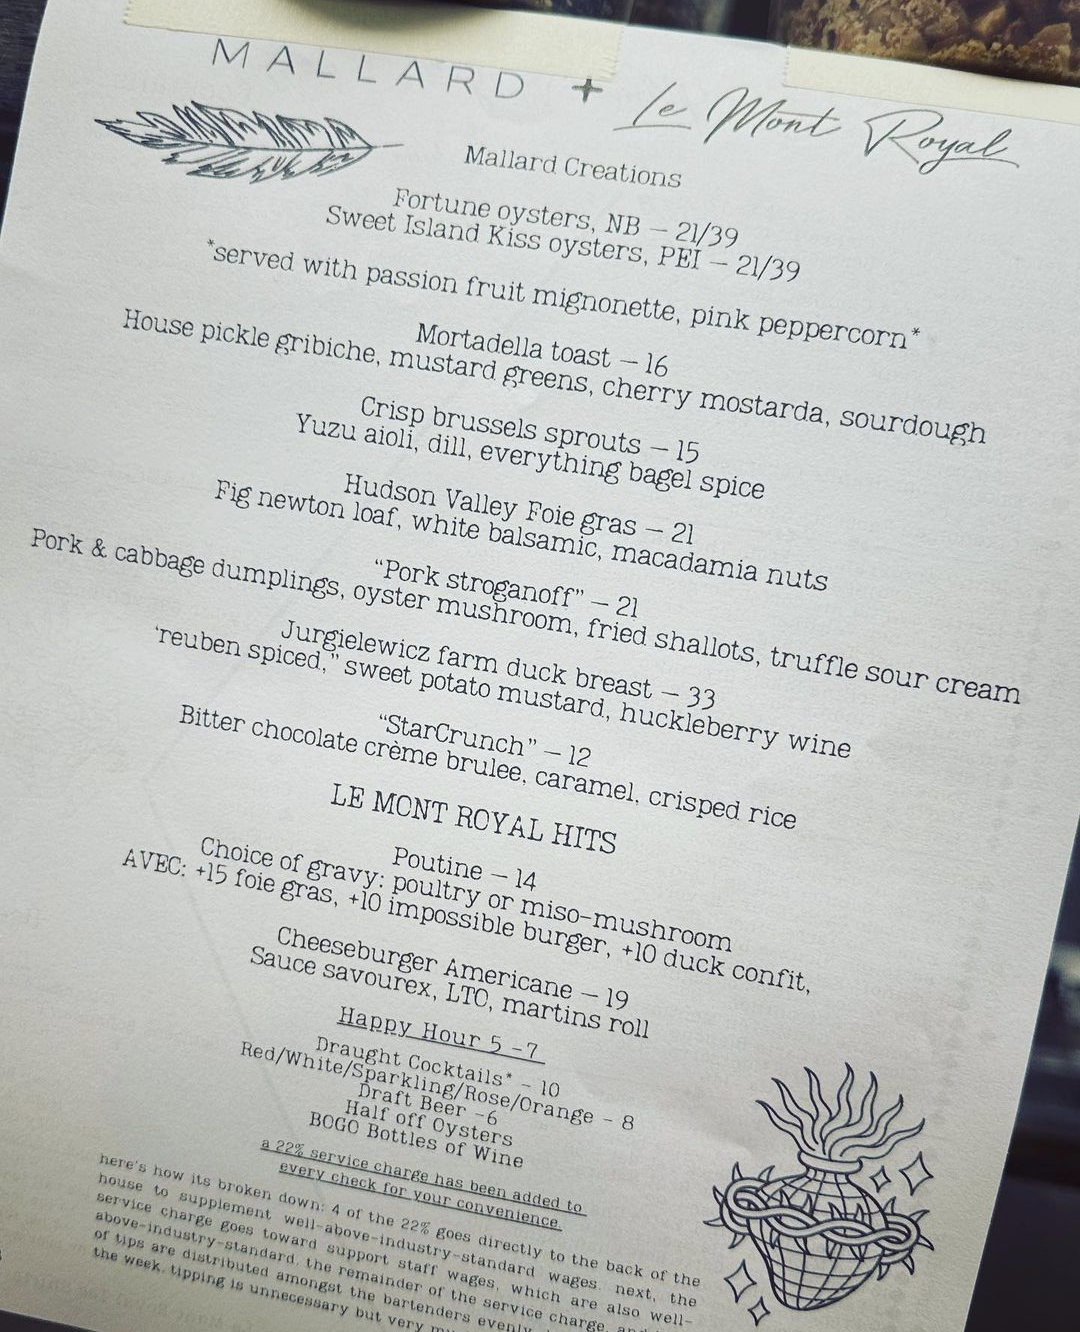 MALLARD + Le Mont Royal
Mallard Creations
Fortune oysters, NB – 21/39
Sweet Island Kiss oysters, PEI – 21/39
*served with passion fruit mignonette, pink peppercorn*
Mortadella toast – 16
House pickle gribiche, mustard greens, cherry mostarda, sourdough
Crisp brussels sprouts – 15
Yuzu aioli, dill, everything bagel spice
Hudson Valley Foie gras – 21
Fig newton loaf, white balsamic, macadamia nuts
“Pork stroganoff” – 21
Pork & cabbage dumplings, oyster mushroom, fried shallots, truffle sour cream
Jurgielewicz farm duck breast – 33
‘reuben spiced,” sweet potato mustard, huckleberry wine
“StarCrunch” – 12
Bitter chocolate crème brulee, caramel, crisped rice
LE MONT ROYAL HITS
Poutine – 14
Choice of gravy: poultry or miso-mushroom
AVEC: +15 foie gras, +10 impossible burger, +10 duck confit,
Cheeseburger Americane – 19
Sauce savourex, LTO, martins roll
Happy Hour 5 -7
Draught Cocktails* – 10
Red/White/Sparkling/Rose/Orange – 8
Draft Beer -6
Half off Oysters
BOGO Bottles of Wine
a 22% service charge has been added to
every check for your convenience.
here's how its broken down: 4 of the 22% goes directly to the back of the
house to supplement well-above-industry-standard wages. next, the
service charge goes toward support staff wages, which are also well-
above-industry-standard. the remainder of the service charge, and
of tips are distributed amongst the bartenders evenly
the week. tipping is unnecessary but very